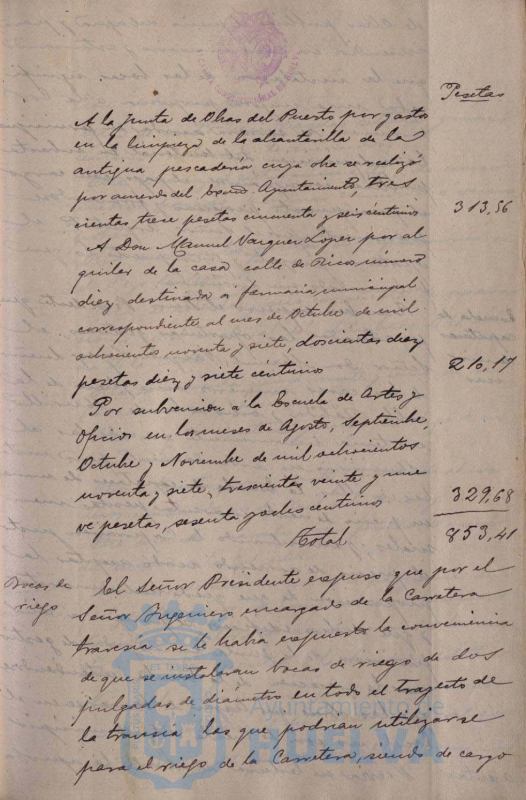 Pesetas
A la Junta de Obras del Puerto por gastos
en la limpieza de la alcantarilla de la
antigua pescadería cuya oba se realizó
por acuerdo del Excmo Ayuntamiento, tres
cientas trece pesetas cincuenta y seis céntimos 313,56
A Don Manuel Vazquez Lopez por al
quiler de la casa calle de Ricos número
diez destinada a farmacia municipal
correspondiente al mes de Octubre de mil
ochocientos noventa y siete, doscientas diez
pesetas diez y siete céntimos 210,17
Por subvencion a la Escuela de Artes y
Oficios en los meses de Agosto, Septiembre,
Octubre y Noviembre de mil ochocientos
noventa y siete, trescientas veinte y nue
ve pesetas, sesenta y ocho céntimos 329,68
Total 853,41
Bocas de
riego
El Señor Presidente expuso que por el
Señor Ingeniero encargado de la Carretera
travesia se le había expuesto la conveniencia
de que se instalaran bocas de riego de dos
pulgadas de diámetro en todo el trayecto de
la travesia las que podrían utilizarse
para el riego de la Carretera, siendo de cargo
Ayuntamiento de
HUELVA